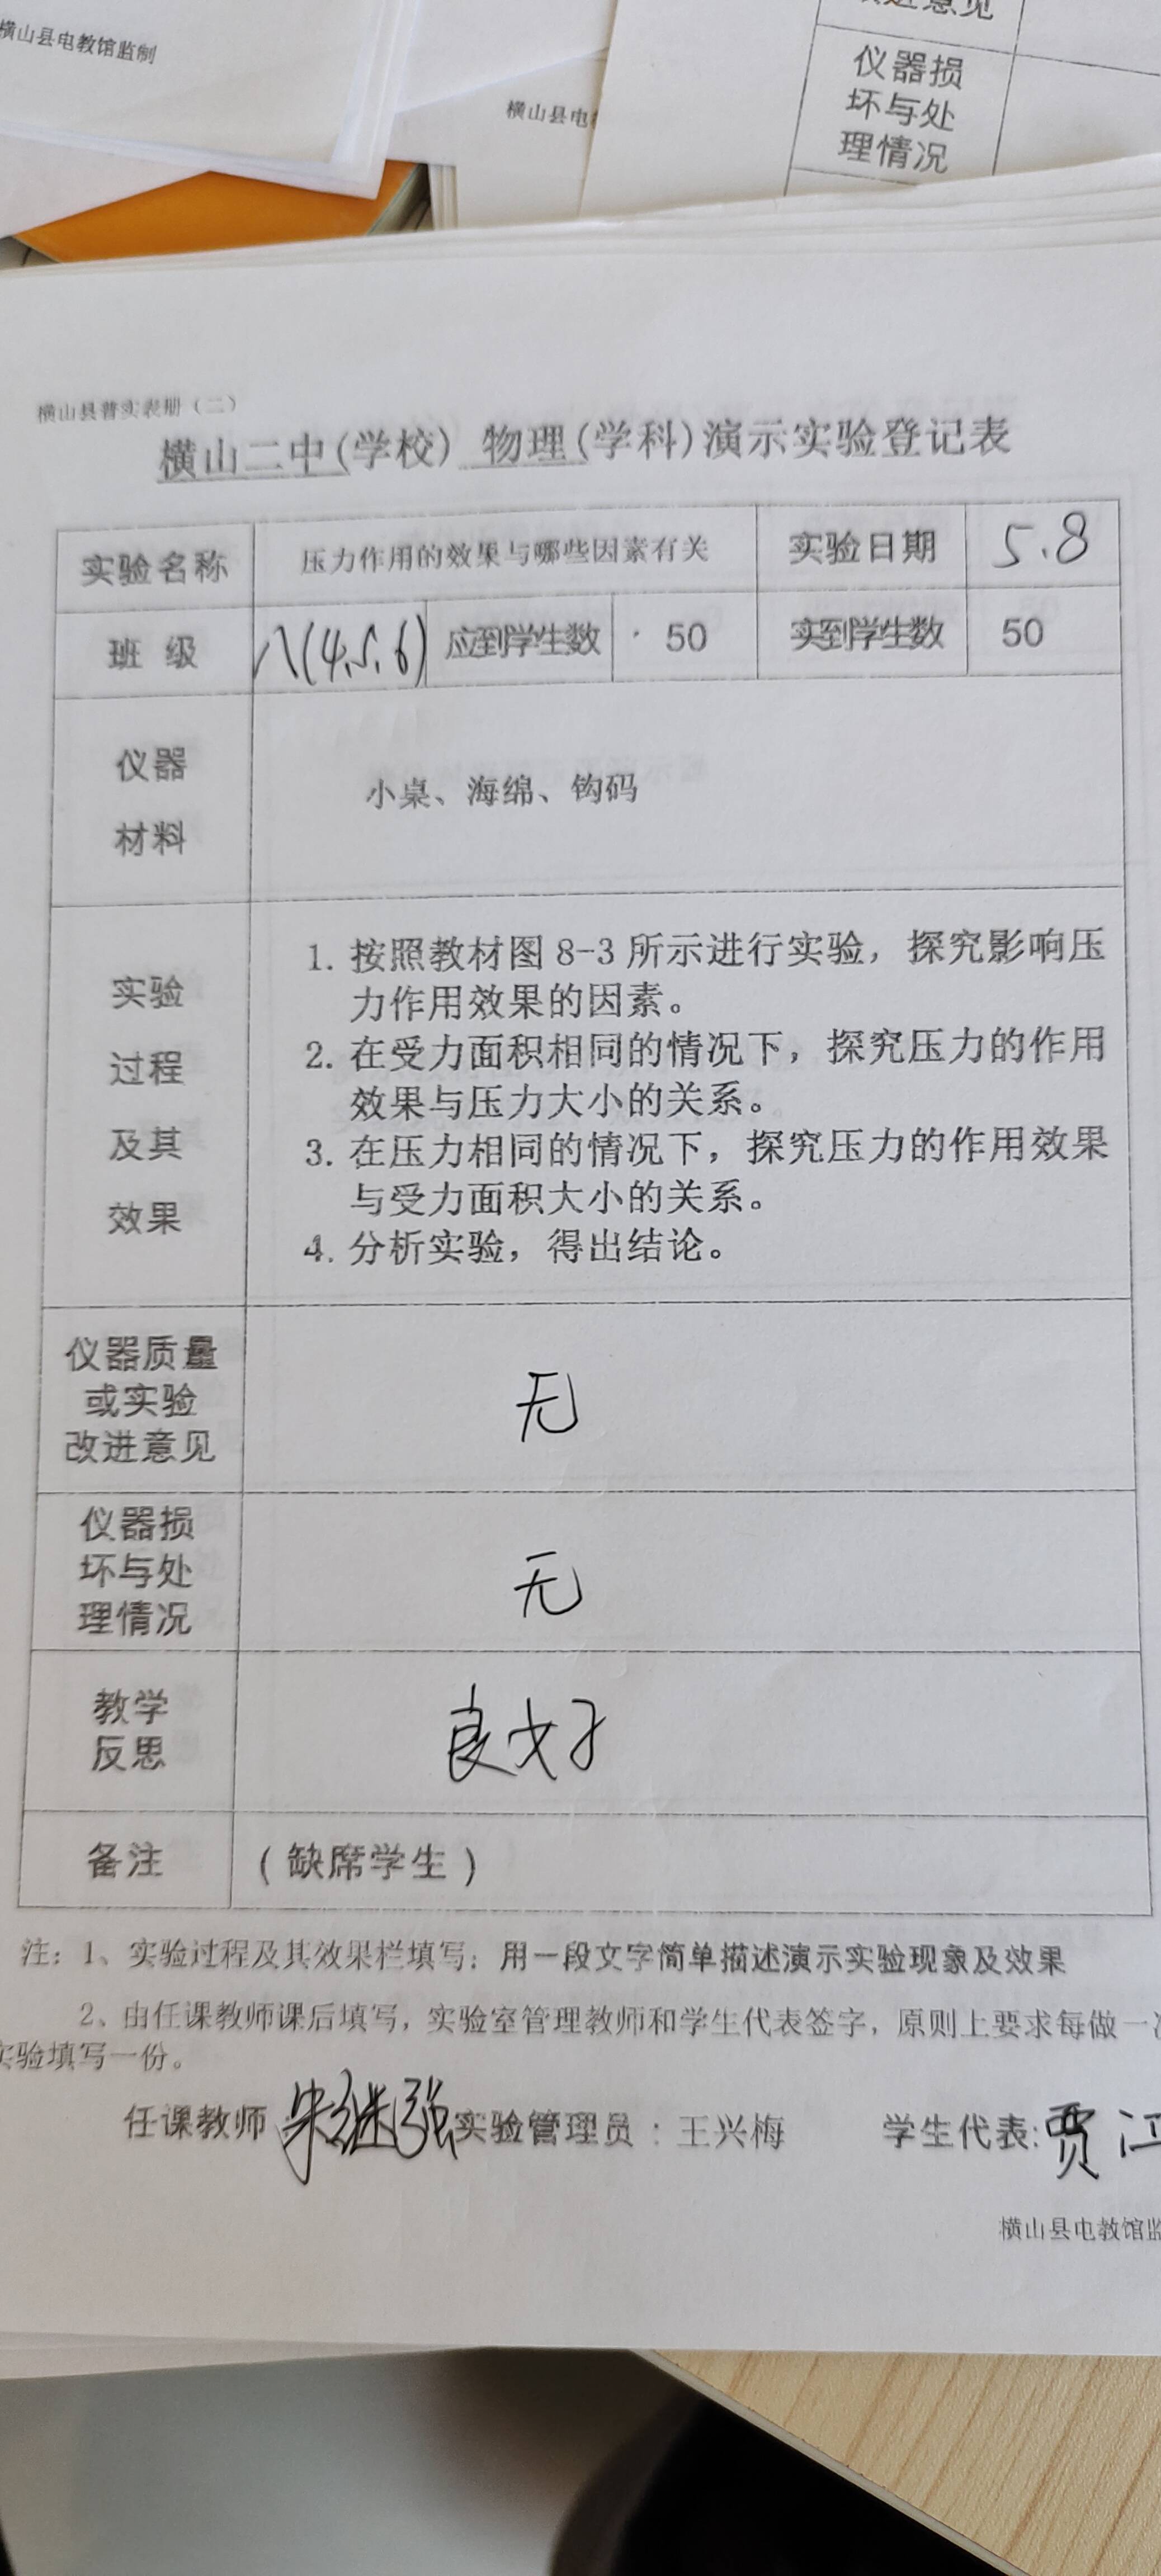 横山县电教馆监制
横山县电
改进意见
仪器损
坏与处
理情况
横山县普实表册（二）
横山二中(学校) 物理(学科)演示实验登记表
实验名称 压力作用的效果与哪些因素有关 实验日期 5.8
班 级 八(4.5.6) 应到学生数 50 实到学生数 50
仪器
材料
小桌、海绵、钩码
实验
过程
及其
效果
1. 按照教材图 8-3 所示进行实验，探究影响压
力作用效果的因素。
2. 在受力面积相同的情况下，探究压力的作用
效果与压力大小的关系。
3. 在压力相同的情况下，探究压力的作用效果
与受力面积大小的关系。
4. 分析实验，得出结论。
仪器质量
或实验
改进意见
无
仪器损
坏与处
理情况
无
教学
反思
良好
备注 (缺席学生)
注：1、实验过程及其效果栏填写：用一段文字简单描述演示实验现象及效果
2、由任课教师课后填写，实验室管理教师和学生代表签字，原则上要求每做一
实验填写一份。
任课教师 朱继强 实验管理员：王兴梅 学生代表:贾江
横山县电教馆监